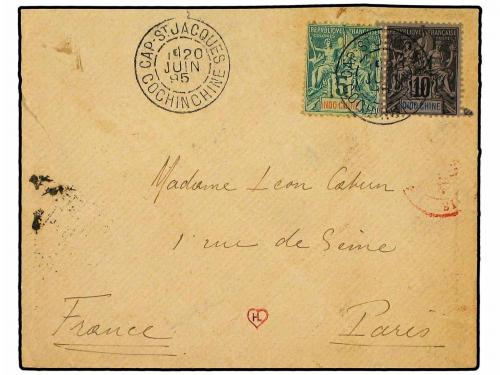 CAP-ST JACQUES
20
JUIN
95
COCHINCHINE
RÉPUBLIQUE FRANÇAISE
COLONIES
5
INDO-CHINE
RÉPUBLIQUE FRANÇAISE
COLONIES POSTES
10
INDO-CHINE
Madame Leon Cahun
1 rue de Seine
France Paris
HL